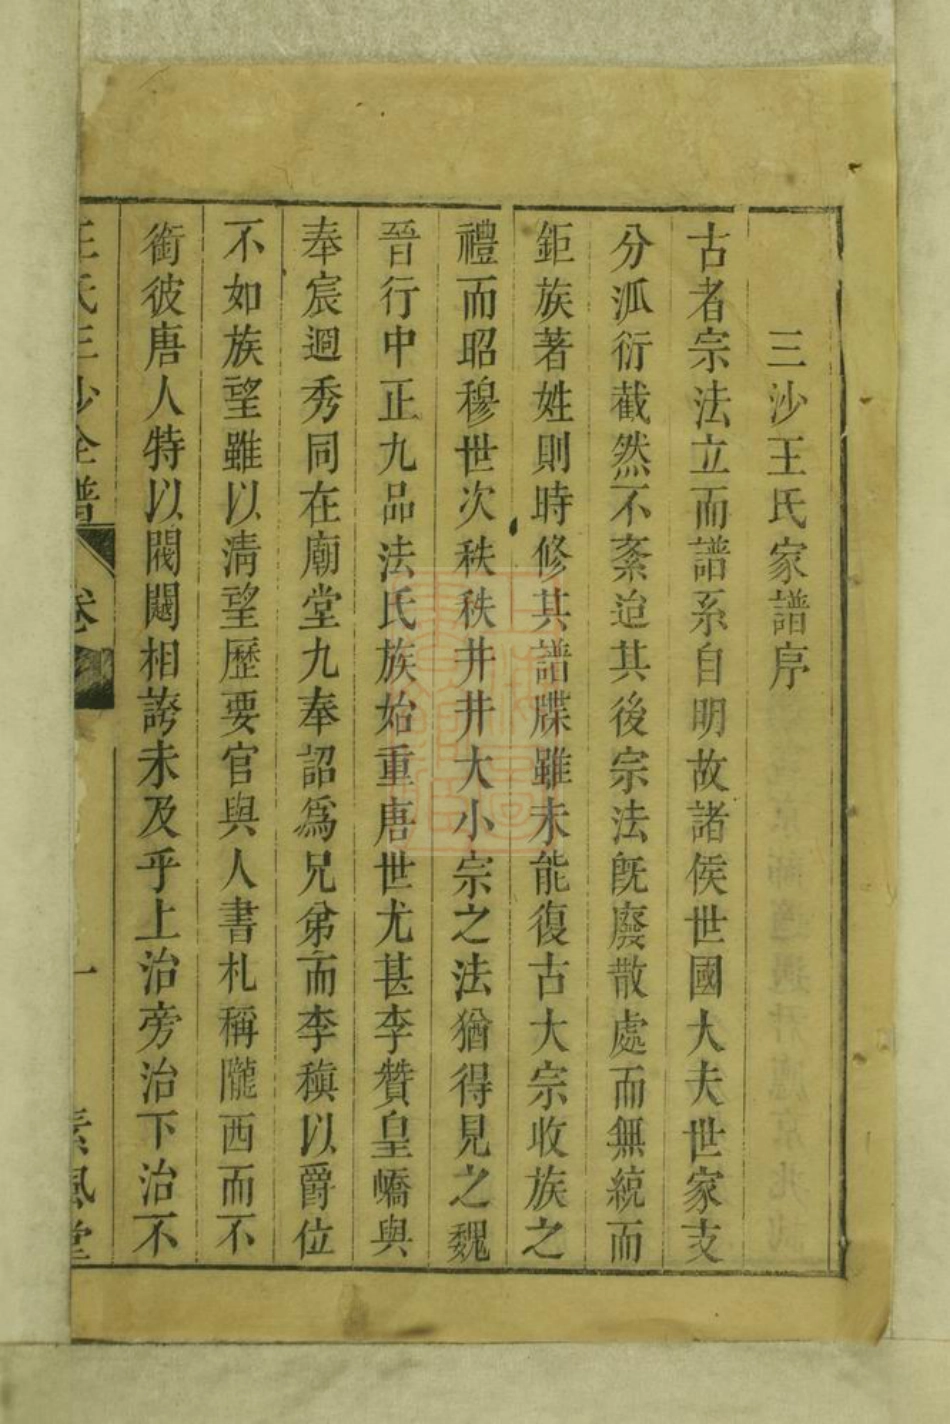 三沙王氏家譜序
古者宗法立而譜系自明故諸侯世國大夫世家支
分泒衍截然不紊迨其後宗法旣廢散處而無統而
鉅族著姓則時修其譜牒雖未能復古大宗收族之
禮而昭穆世次秩秩井井大小宗之法猶得見之魏
晉行中正九品法氏族始重唐世尤甚李贊皇嶠與
奉宸逈秀同在廟堂九奉詔爲兄弟而李稹以爵位
不如族望雖以淸望歷要官與人書札稱隴西而不
銜彼唐人特以閥閱相誇未及乎上治旁治下治不
王氏三沙全譜 卷 一 素風堂